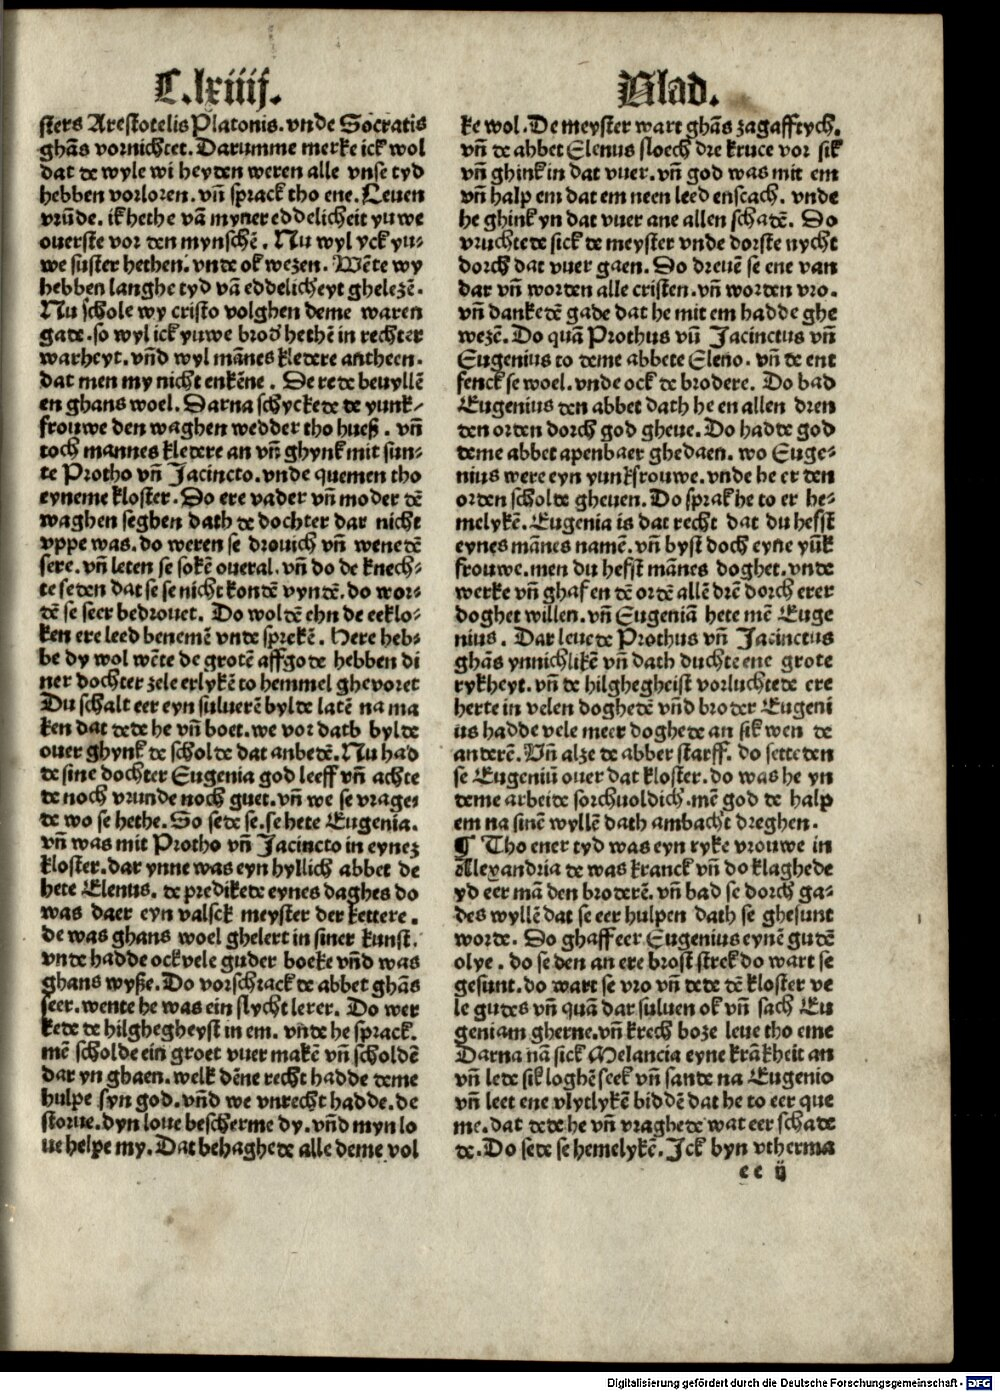 C.lxiiij. Blad.
sters Arestotelis Platonis. vnde Socratis
ghās vornichtet. Darumme merke ick wol
dat de wyle wi heyden weren alle vnse tyd
hebben vorloren. vn̄ sprack tho ene. Leuen
vrūde. ik hethe vā myner eddelicheit yuwe
ouerste vor den mynschē. Nu wyl yck yu-
we suster hethen. vnde ok wezen. Wēte wy
hebben langhe tyd vā eddelicheyt ghelezē.
Nu schole wy cristo volghen deme waren
gade. so wyl ick yuwe brod hethē in rechter
warheyt. vn̄d wyl mānes kledere antheen.
dat men my nicht enkēne. De rede beuyllē
en ghans woel. Darna schyckede de yunk-
frouwe den waghen wedder tho hueß. vn̄
toch mannes kledere an vn̄ ghynk mit sun-
te Protho vn̄ Jacincto. vnde quemen tho
eyneme kloster. Do ere vader vn̄ moder dē
waghen seghen dath de dochter dar nicht
vppe was. do weren se drouich vn̄ wenedē
sere. vn̄ leten se sokē oueral. vn̄ do de knech-
te seden dat se se nicht kondē vyndē. do wor-
dē se seer bedrouet. Do woldē ehn de eeklo-
ken ere leed benemē vnde sprekē. Here heb-
be dy wol wēte de grotē affgode hebben di
ner dochter zele erlykē to hemmel ghevoret
Du schalt eer eyn suluerē bylde latē na ma
ken dat dede he vn̄ boet. we vor dath bylde
ouer ghynk de scholde dat anbedē. Nu had
de sine dochter Eugenia god leeff vn̄ achte
de noch vrunde noch guet. vn̄ we se vrage-
de wo se hethe. So sede se. se hete Eugenia.
vn̄ was mit Protho vn̄ Jacincto in eynez
kloster. dar ynne was eyn hyllich abbet de
hete Elenus. de predikede eynes daghes do
was daer eyn valsck meyster der kettere.
de was ghans woel ghelert in siner kunst.
vnde hadde ock vele guder boeke vn̄d was
ghans wyße. Do vorschrack de abbet ghās
seer. wente he was ein slycht lerer. Do wer
kede de hilghegheyst in em. vn̄de he sprack.
mē scholde ein groet vuer makē vn̄ scholdē
dar yn ghaen. welk dēne recht hadde deme
hulpe syn god. vn̄d we vnrecht hadde. de
storue. dyn loue bescherme dy. vn̄d myn lo
ue helpe my. Dat behaghede alle deme vol
ke wol. De meyster wart ghās zagafftych.
vn̄ de abbet Elenus sloech dre kruce vor sik
vn̄ ghink in dat vuer. vn̄ god was mit em
vn̄ halp em dat em neen leed enscach. vnde
he ghink yn dat vuer ane allen schadē. Do
vruchtede sick de meyster vnde dorste nycht
dorch dat vuer gaen. Do dreuē se ene van
dar vn̄ worden alle cristen. vn̄ worden vro.
vn̄ danckedē gade dat he mit em hadde ghe
wezē. Do quā Prothus vn̄ Jacinctus vn̄
Eugenius to deme abbete Eleno. vn̄ de ent
fenck se woel. vnde ock de brodere. Do bad
Eugenius den abbet dath he en allen dren
den orden dorch god gheue. Do hadde god
deme abbet apenbaer ghedaen. wo Euge-
nius were eyn yunkfrouwe. vnde he er den
orden scholde gheuen. Do sprak he to er he-
melykē. Eugenia is dat recht dat du hefst
eynes mānes namē. vn̄ byst doch eyne yūk
frouwe. men du hefst mānes doghet. vnde
werke vn̄ ghaf en dē ordē allē drē dorch erer
doghet willen. vn̄ Eugeniā hete mē Euge
nius. Dar leuede Prothus vn̄ Jacinctus
ghās ynnichlikē vn̄ dath duchte ene grote
rykheyt. vn̄ de hilghegheist vorluchtede ere
herte in velen doghedē vn̄d broder Eugeni
us hadde vele meer doghede an sik wen de
anderē. Vn̄ alze de abber starff. do setteden
se Eugeniū ouer dat kloster. do was he yn
deme arbeide sorchuoldich. mē god de halp
em na sinē wyllē dath ambacht dreghen.
¶ Tho ener tyd was eyn ryke vrouwe in
Alexandria de was kranck vn̄ do klaghede
yd eer mā den broderē. vn̄ bad se dorch ga-
des wyllē dat se eer hulpen dath se ghesunt
worde. Do ghaff eer Eugenius eynē gudē
olye. do se den an ere brost strek do wart se
gesunt. do wart se vro vn̄ dede dē kloster ve
le gudes vn̄ quā dar suluen ok vn̄ sach Eu
geniam gherne. vn̄ krech boze leue tho eme
Darna nā sick Melancia eyne krākheit an
vn̄ lede sik loghēseek vn̄ sande na Eugenio
vn̄ leet ene vlytlykē biddē dat he to eer que
me. dat dede he vn̄ vraghede wat eer schade
de. Do sede se hemelykē. Jck byn vtherma
ee ij
Digitalisierung gefördert durch die Deutsche Forschungsgemeinschaft - DFG